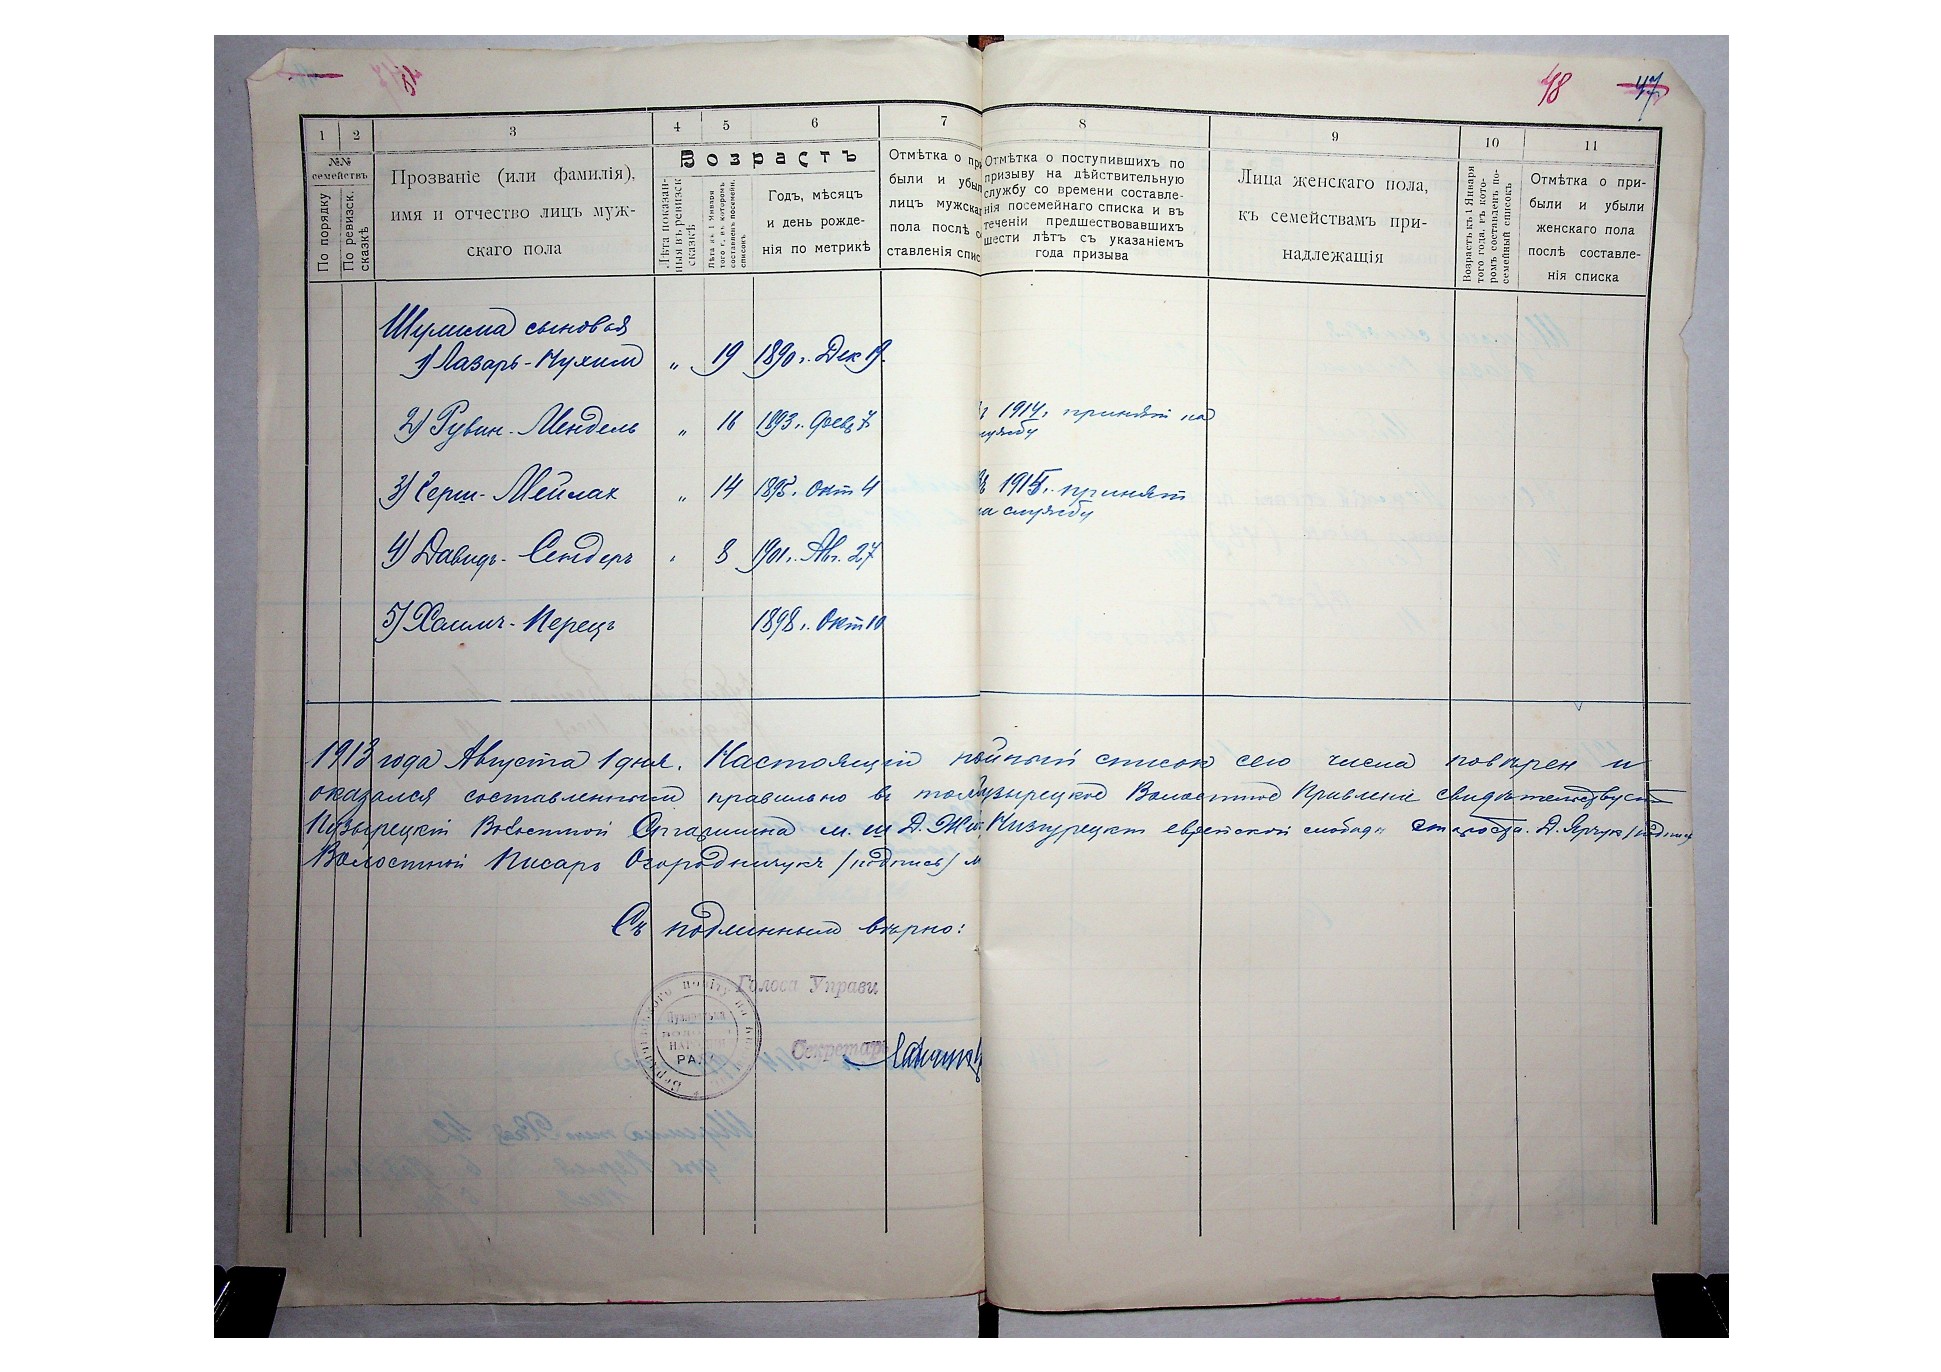 48 47
1 2 3 4 5 6 7 8 9 10 11
№№ семействъ
По порядку
По ревизск. сказкѣ
Прозваніе (или фамилія),
имя и отчество лицъ муж-
скаго пола
Возрастъ
Лѣта показан-
ныя въ ревизск
сказкѣ
Лѣта къ 1 Января
того г., въ которомъ
составленъ посемейн.
списокъ
Годъ, мѣсяцъ
и день рожде-
нія по метрикѣ
Отмѣтка о при
были и убыл
лицъ мужска
пола послѣ с
ставленія спис
Отмѣтка о поступившихъ по
призыву на дѣйствительную
службу со времени составле-
нія посемейнаго списка и въ
теченіи предшествовавшихъ
шести лѣтъ съ указаніемъ
года призыва
Лица женскаго пола,
къ семействамъ при-
надлежащія
Возрастъ къ 1 Января
того года, въ кото-
ромъ составленъ по-
семейный списокъ
Отмѣтка о при-
были и убыли
женскаго пола
послѣ составле-
нія списка
Шулима сыновья
1) Лазарь-Нухим „ 19 1890 г. Дек 19.
2) Рувин-Мендель „ 16 1893 г. Февр 7 1914 г. принят на
службу
3) Герш-Мейлах „ 14 1895 г. Окт 4 въ 1915 г. принят
на службу
4) Давидъ-Сендеръ „ 8 1901 г. Авг. 27
5) Хаимъ-Перецъ 1898 г. Окт 10
1913 года Августа 1 дня. Настоящій список сего числа повѣрен и
оказался составленным правильно въ том Пузырецкое Волостное Правленіе свидѣтельствует
Пузырецкій Волостной Старшина м. ш Д. Пузырецкій еврейской слободы староста Д. Ярчук /подпись
Волостной Писарь Огородничукъ /подпись/ м
Съ подлинным вѣрно:
Голова Управи
Секретарь
повіту на
НАРОДНА
РАДА